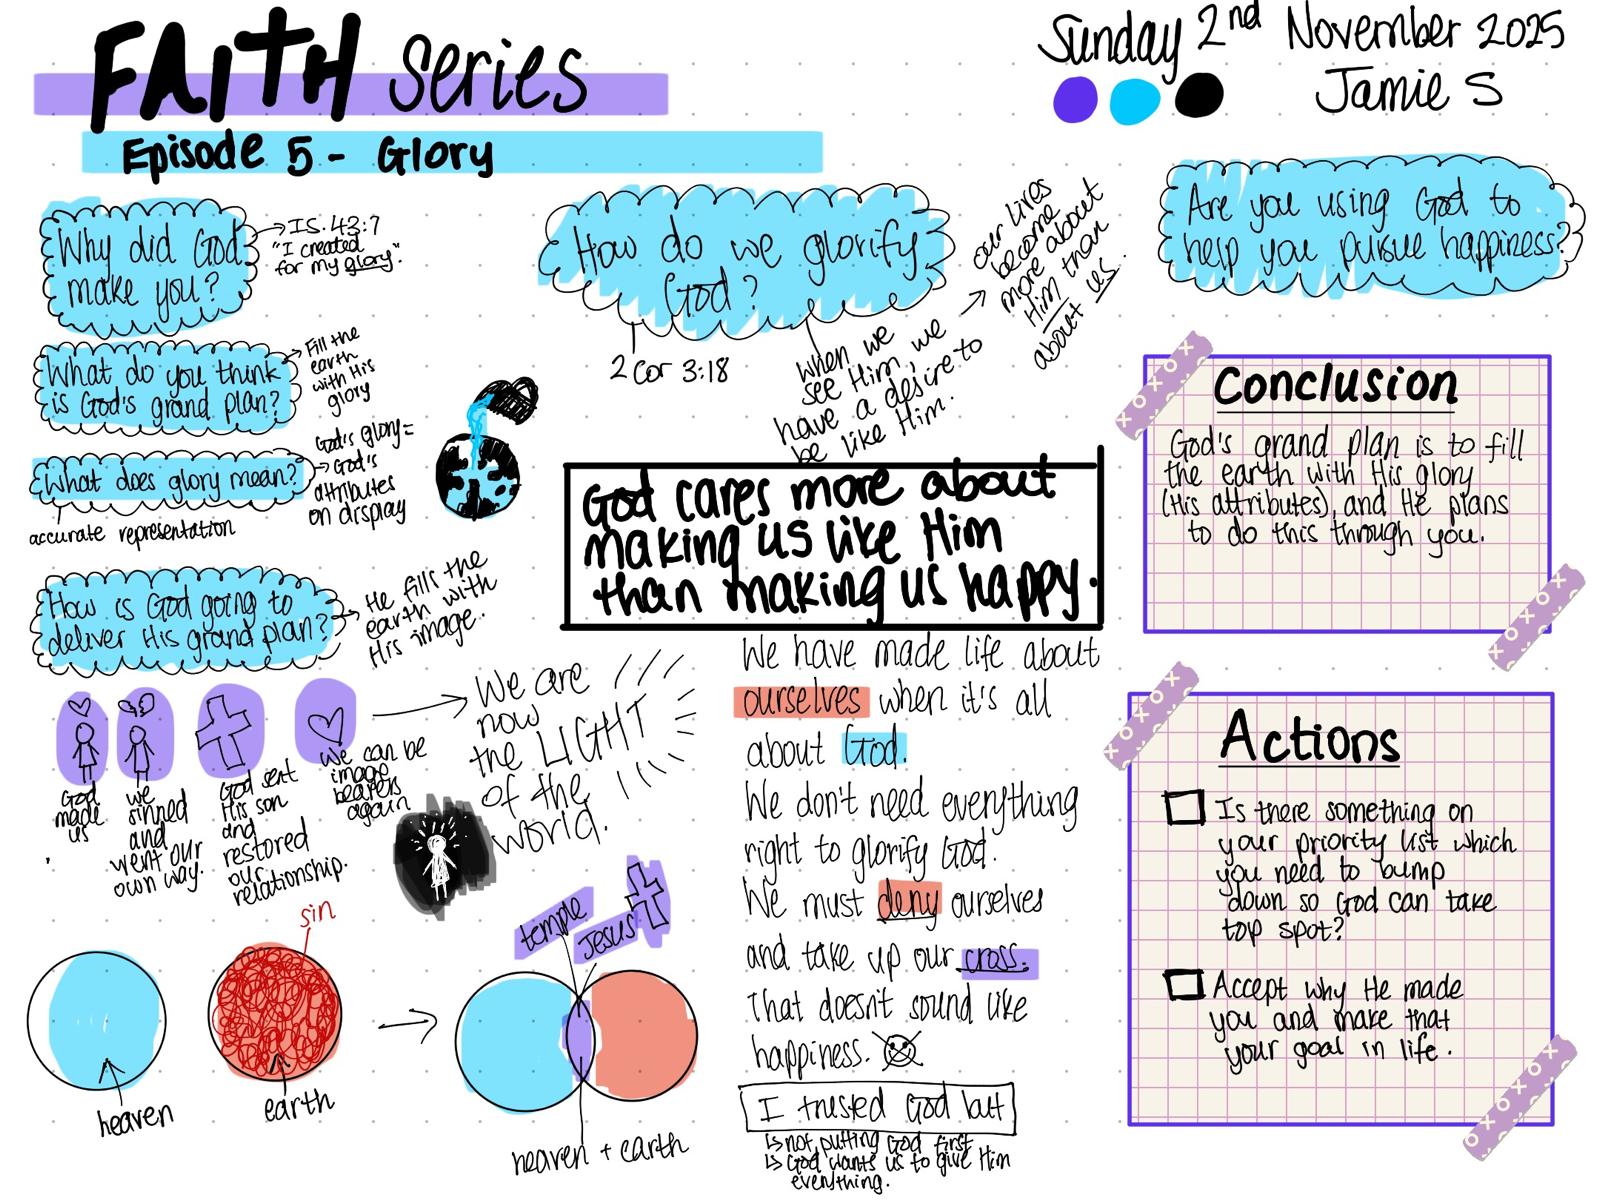 FAITH series
Episode 5 - Glory
Sunday 2nd November 2025
Jamie S
Why did God
make you?
IS. 43:7
"I created
for my glory".
What do you think
is God's grand plan?
Fill the
earth
with His
glory
What does glory mean?
accurate representation
God's glory=
God's
attributes
on display
How is God going to
deliver His grand plan?
He fills the
earth with
His image.
God
made
us
we
sinned
and
went our
own way.
God sent
His son
and
restored
our
relationship.
we can be
image
bearers
again
We are
now
the LIGHT
of the
world.
heaven
sin
earth
temple
Jesus
heaven + earth
How do we glorify
God?
2 Cor 3:18
when we
see Him, we
have a desire to
be like Him.
our lives
become
more about
Him than
about us.
God cares more about
making us like Him
than making us happy.
We have made life about
ourselves when it's all
about God.
We don't need everything
right to glorify God.
We must deny ourselves
and take up our cross.
That doesn't sound like
happiness.
I trusted God but
↳ not putting God first
↳ God wants us to give Him
everything.
Are you using God to
help you pursue happiness?
Conclusion
God's grand plan is to fill
the earth with His glory
(His attributes), and He plans
to do this through you.
Actions
Is there something on
your priority list which
you need to bump
down so God can take
top spot?
Accept why He made
you and make that
your goal in life.